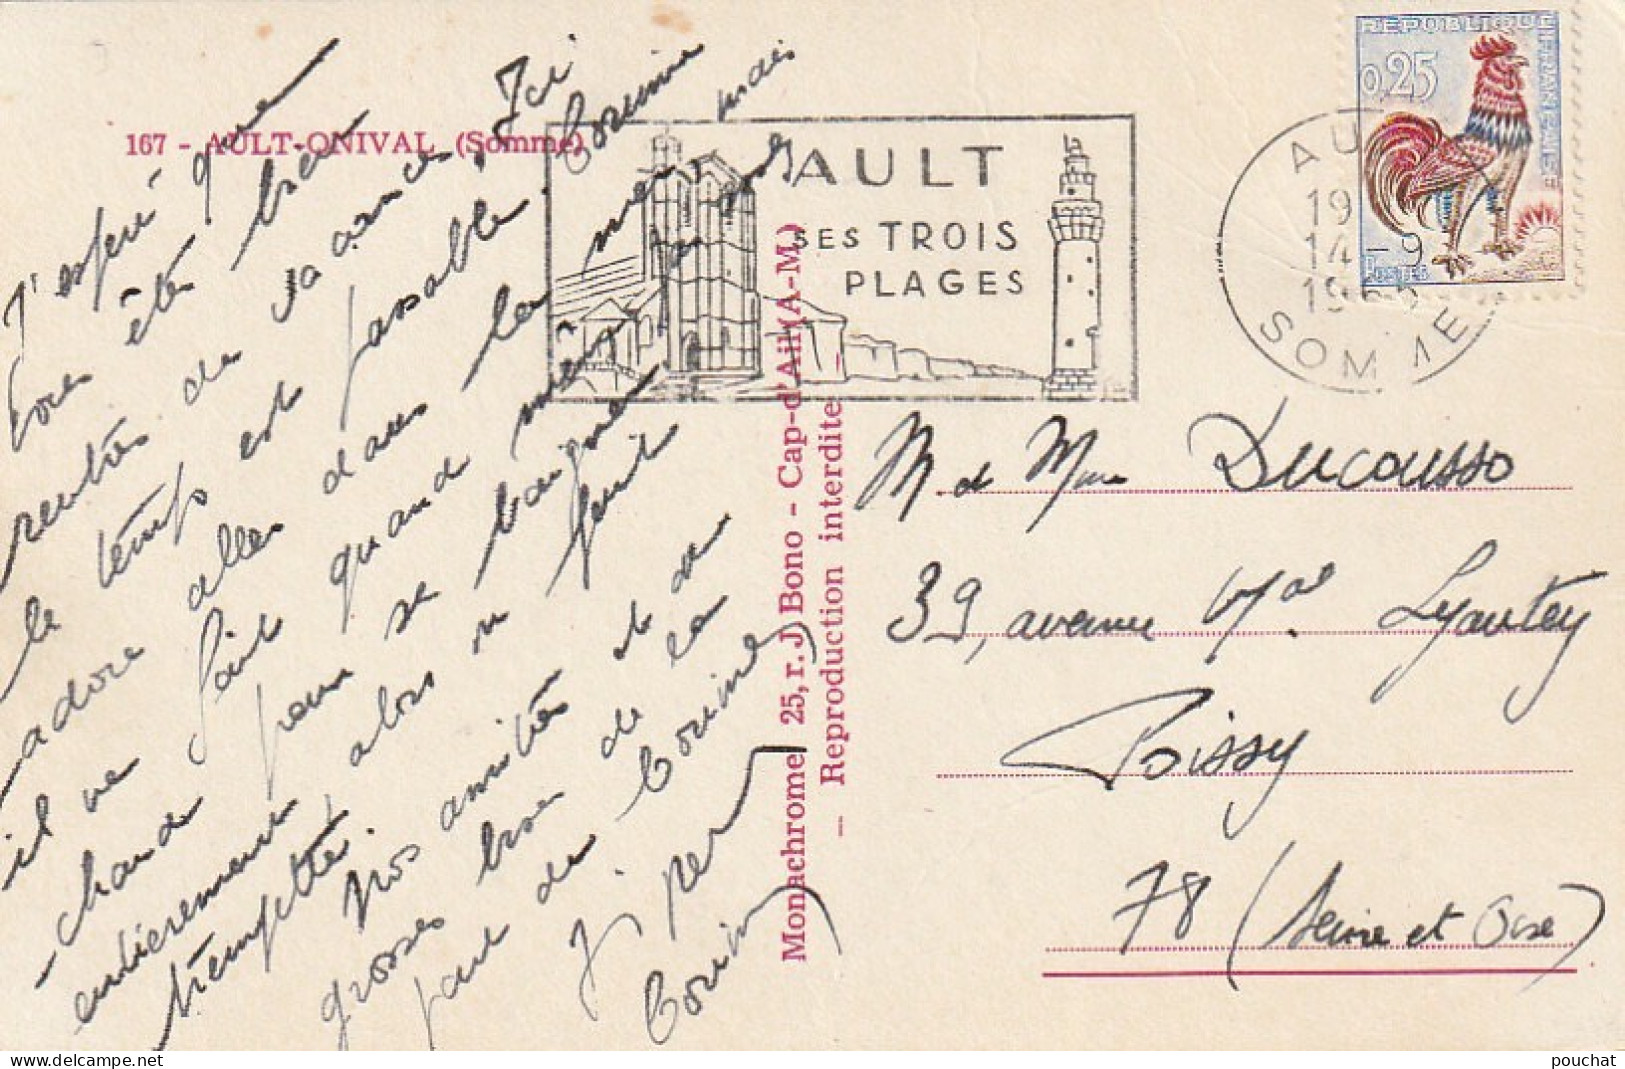 167 - AULT-ONIVAL (Somme)
J'espère que
vous êtes bien
rentrés de vacances. Ici
le temps est passable. Corinne
adore aller dans la mer, mais
il ne fait quand même pas
chaud pour se baigner
entièrement alors on fait
trempette.
Nos amitiés et de
grosses bises de la
part de Corinne
Corinne
AULT
SES TROIS
PLAGES
AU
19
14 - 9
19
SOMME
REPUBLIQUE FRANCAISE
0,25
POSTES
Monachrome 25, r. J. Bono - Cap-d'Ail (A-M.)
— Reproduction interdite —
M et Mme Ducousso
39, avenue Mal Lyautey
Poissy
78 (Seine et Oise)
pouchat